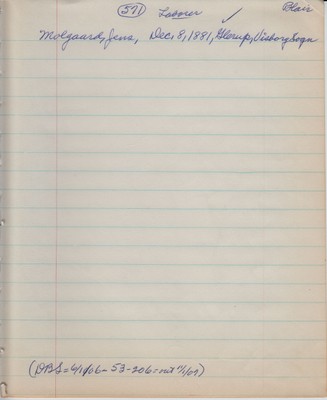 571 Laborer ✓ Blair
Molgaard, Jens, Dec, 8, 1881, Glerup, Visborg Sogn
(DBS=6/1/06-53-206=nit 7/1/07)